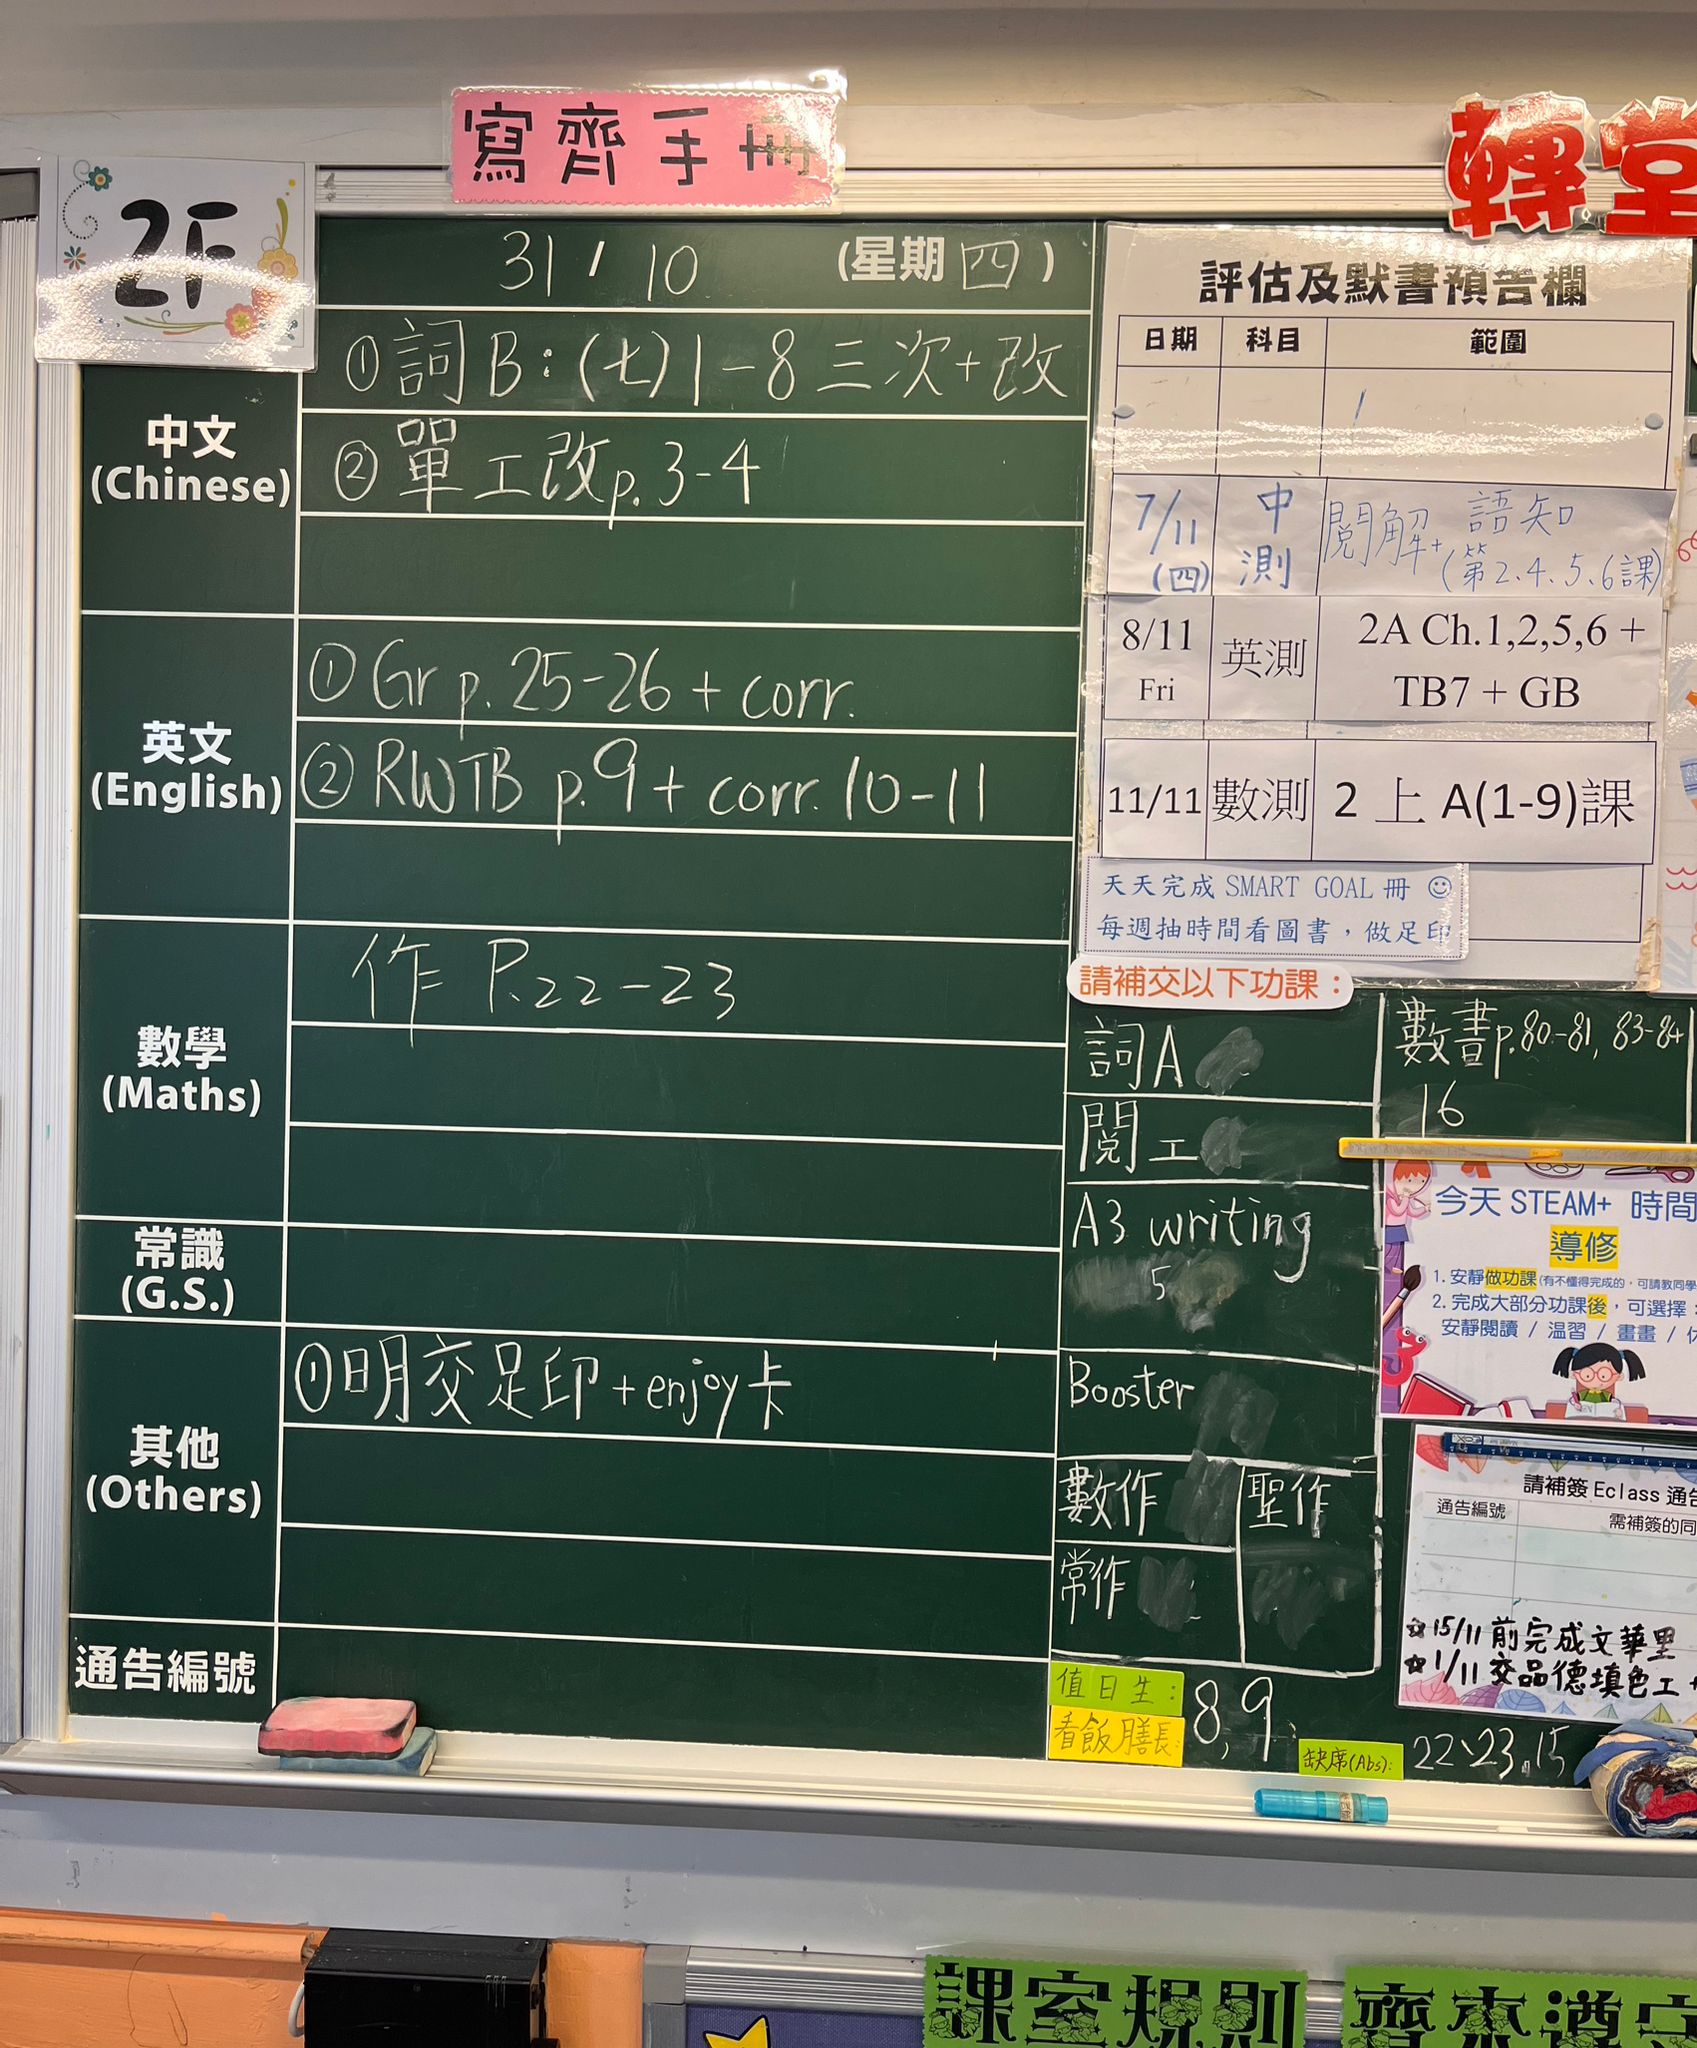 寫齊手冊
轉堂
2F
31 / 10 (星期四)
中文
(Chinese)
①詞B：(七)1-8三次+改
②單工改p.3-4
英文
(English)
①Gr p. 25-26 + corr.
②RWTB p.9 + corr. 10-11
數學
(Maths)
作 P.22-23
常識
(G.S.)
其他
(Others)
①明交足印+enjoy卡
通告編號
評估及默書預告欄
日期 科目 範圍
7/11 (四) 中測 閱解+語知 (第2、4、5、6課)
8/11 Fri 英測 2A Ch.1,2,5,6 + TB7 + GB
11/11 數測 2 上 A(1-9)課
天天完成 SMART GOAL 冊 ☺
每週抽時間看圖書，做足印
請補交以下功課：
詞A
閱工
A3 writing
5
Booster
數作
聖作
常作
數書p.80-81, 83-84
16
今天 STEAM+ 時間
導修
1. 安靜做功課(有不懂得完成的，可請教同學
2. 完成大部分功課後，可選擇：
安靜閱讀 / 温習 / 畫畫 /
請補簽 Eclass 通告
通告編號
需補簽的同
☆15/11 前完成文華里
☆1/11 交品德填色工+
值日生：
看飯膳長：
8, 9
缺席(Abs)：
22、23、15
課室規則
齊來遵守